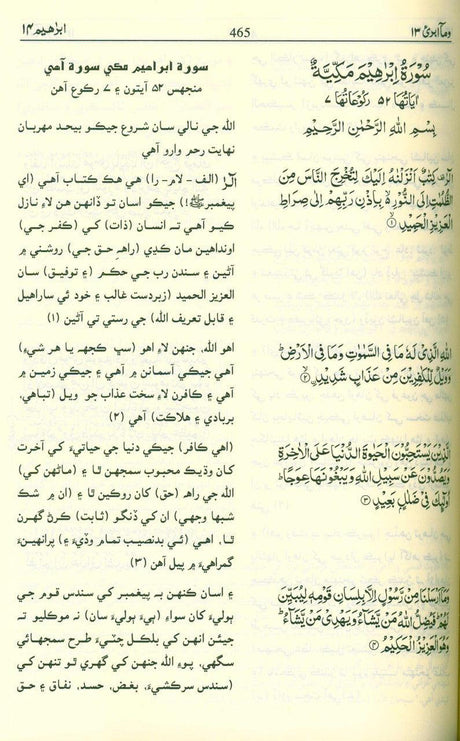 ومآ ابرئ ۱۳
465
ابراهيم ۱۴
سُوۡرَةُ اِبۡرٰهِيۡمَ مَكِّيَّةٌ
اٰيَاتُهَا ۵۲ رُكُوۡعَاتُهَا ۷
بِسۡمِ اللهِ الرَّحۡمٰنِ الرَّحِيۡمِ
الٓرٰ كِتٰبٌ اَنۡزَلۡنٰهُ اِلَيۡكَ لِتُخۡرِجَ النَّاسَ مِنَ
الظُّلُمٰتِ اِلَى النُّوۡرِ بِاِذۡنِ رَبِّهِمۡ اِلٰى صِرَاطِ
الۡعَزِيۡزِ الۡحَمِيۡدِ ۱
اللهِ الَّذِىۡ لَهٗ مَا فِى السَّمٰوٰتِ وَمَا فِى الۡاَرۡضِ
وَوَيۡلٌ لِّلۡكٰفِرِيۡنَ مِنۡ عَذَابٍ شَدِيۡدِ ۲
الَّذِيۡنَ يَسۡتَحِبُّوۡنَ الۡحَيٰوةَ الدُّنۡيَا عَلَى الۡاٰخِرَةِ
وَيَصُدُّوۡنَ عَنۡ سَبِيۡلِ اللهِ وَيَبۡغُوۡنَهَا عِوَجًا
اُولٰٓئِكَ فِىۡ ضَلٰلٍۢ بَعِيۡدٍ ۳
وَمَاۤ اَرۡسَلۡنَا مِنۡ رَّسُوۡلٍ اِلَّا بِلِسَانِ قَوۡمِهٖ لِيُبَيِّنَ
لَهُمۡ فَيُضِلُّ اللهُ مَنۡ يَّشَآءُ وَيَهۡدِىۡ مَنۡ يَّشَآءُ
وَهُوَ الۡعَزِيۡزُ الۡحَكِيۡمُ ۴
سورة ابراهيم مڪي سورة آهي
منجهس ۵۲ آيتون ۽ ۷ رڪوع آهن
الله جي نالي سان شروع جيڪو بيحد مهربان
نهايت رحم وارو آهي
الٓرٰ (الف - لام- را) هي هڪ ڪتاب آهي (اي
پيغمبر ﷺ!) جيڪو اسان تو ڏانهن هن لاءِ نازل
ڪيو آهي ته انسان (ذات) کي (ڪفر جي)
اونداهين مان ڪڍي (راهه حق جي) روشني ۾
آڻين ۽ سندن رب جي حڪم (۽ توفيق) سان
العزيز الحميد (زبردست غالب ۽ خود ئي ساراهيل
۽ قابل تعريف الله) جي رستي تي آڻين (۱)
اهو الله، جنهن لاءِ اهو (سڀ ڪجهه يا هر شيءِ)
آهي جيڪي آسمانن ۾ آهي ۽ جيڪي زمين ۾
آهي ۽ ڪافرن لاءِ سخت عذاب جو ويل (تباهي،
بربادي ۽ هلاڪت) آهي (۲)
(اهي ڪافر) جيڪي دنيا جي حياتيءَ کي آخرت
کان وڌيڪ محبوب سمجهن ٿا ۽ (ماڻهن کي)
الله جي راهه (حق) کان روڪين ٿا ۽ (ان ۾ شڪ
شبها وجهي) ان کي ڏنگو (ثابت) ڪرڻ گهرن
ٿا، اهي (ئي بدنصيب تمام وڏيءَ ۽) پرانهينءَ
گمراهيءَ ۾ پيل آهن (۳)
۽ اسان ڪنهن به پيغمبر کي سندس قوم جي
ٻوليءَ کان سواءِ (ٻيءَ ٻوليءَ سان) نه موڪليو ته
جيئن انهن کي بلڪل چٽيءَ طرح سمجهائي
سگهي، پوءِ الله جنهن کي گهري ٿو تنهن کي
(سندس سرڪشيءَ، بغض، حسد، نفاق ۽ حق